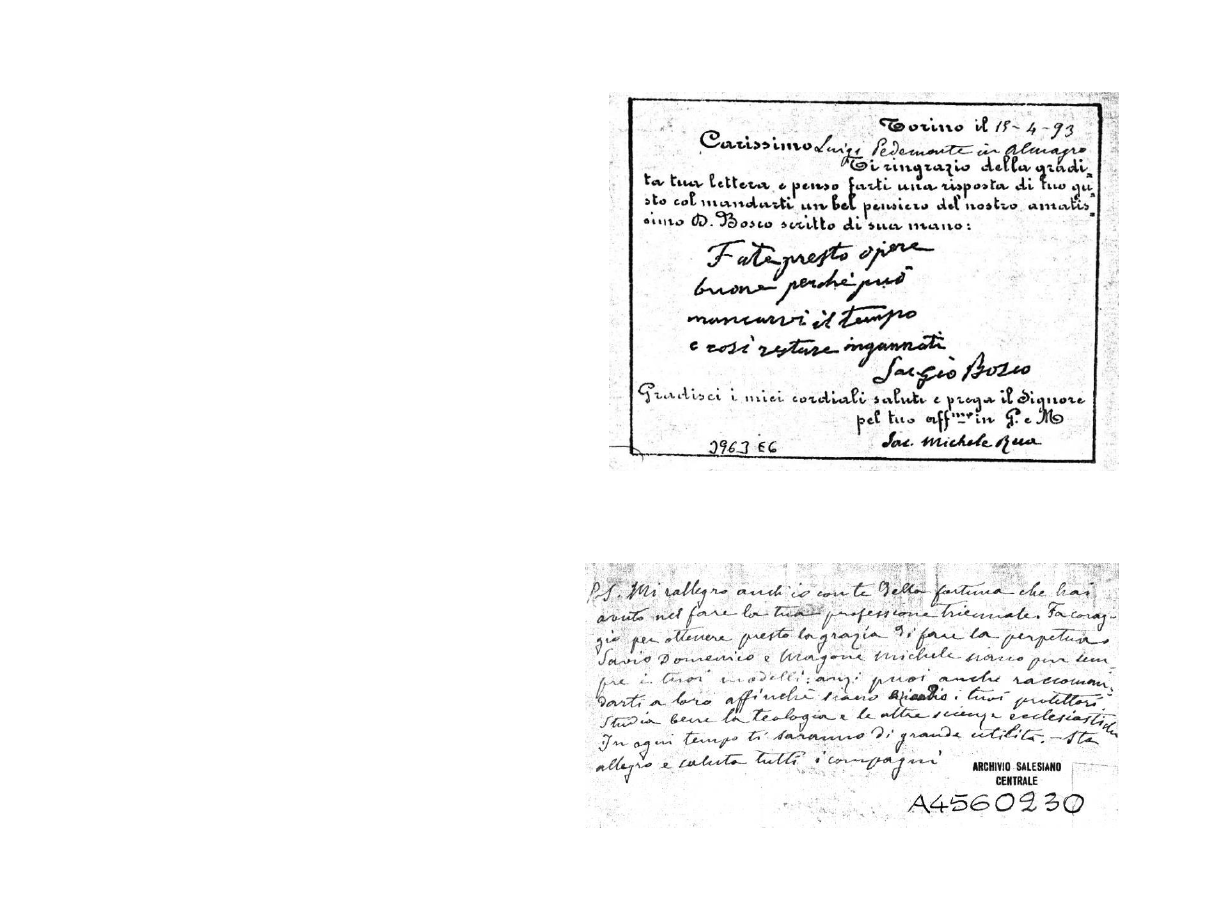 Torino il 15-4-93
Carissimo Luigi Pedemonte in Almagro
Ti ringrazio della gradi-
ta tua lettera e penso farti una risposta di tuo gu-
sto col mandarti un bel pensiero del nostro amatis-
simo D. Bosco scritto di sua mano:
Fate presto opere
buone perché può
mancarvi il tempo
e così restare ingannati
Sac. Gio Bosco
Gradisci i miei cordiali saluti e prega il Signore
pel tuo aff.mo in G. e M
Sac. Michele Rua
3963 E6
P.S. Mi rallegro anch'io con te della fortuna che hai
avuto nel fare la tua professione triennale. Fa corag-
gio per ottenere presto la grazia di fare la perpetua.
Savio Domenico e Magone Michele siano pur sem-
pre i tuoi modelli: anzi puoi anche raccoman-
darti a loro affinché siano i tuoi protettori.
Studia bene la teologia e le altre scienze ecclesiastiche
In ogni tempo ti saranno di grande utilità. - Sta
allegro e saluta tutti i compagni
ARCHIVIO SALESIANO
CENTRALE
A4560230